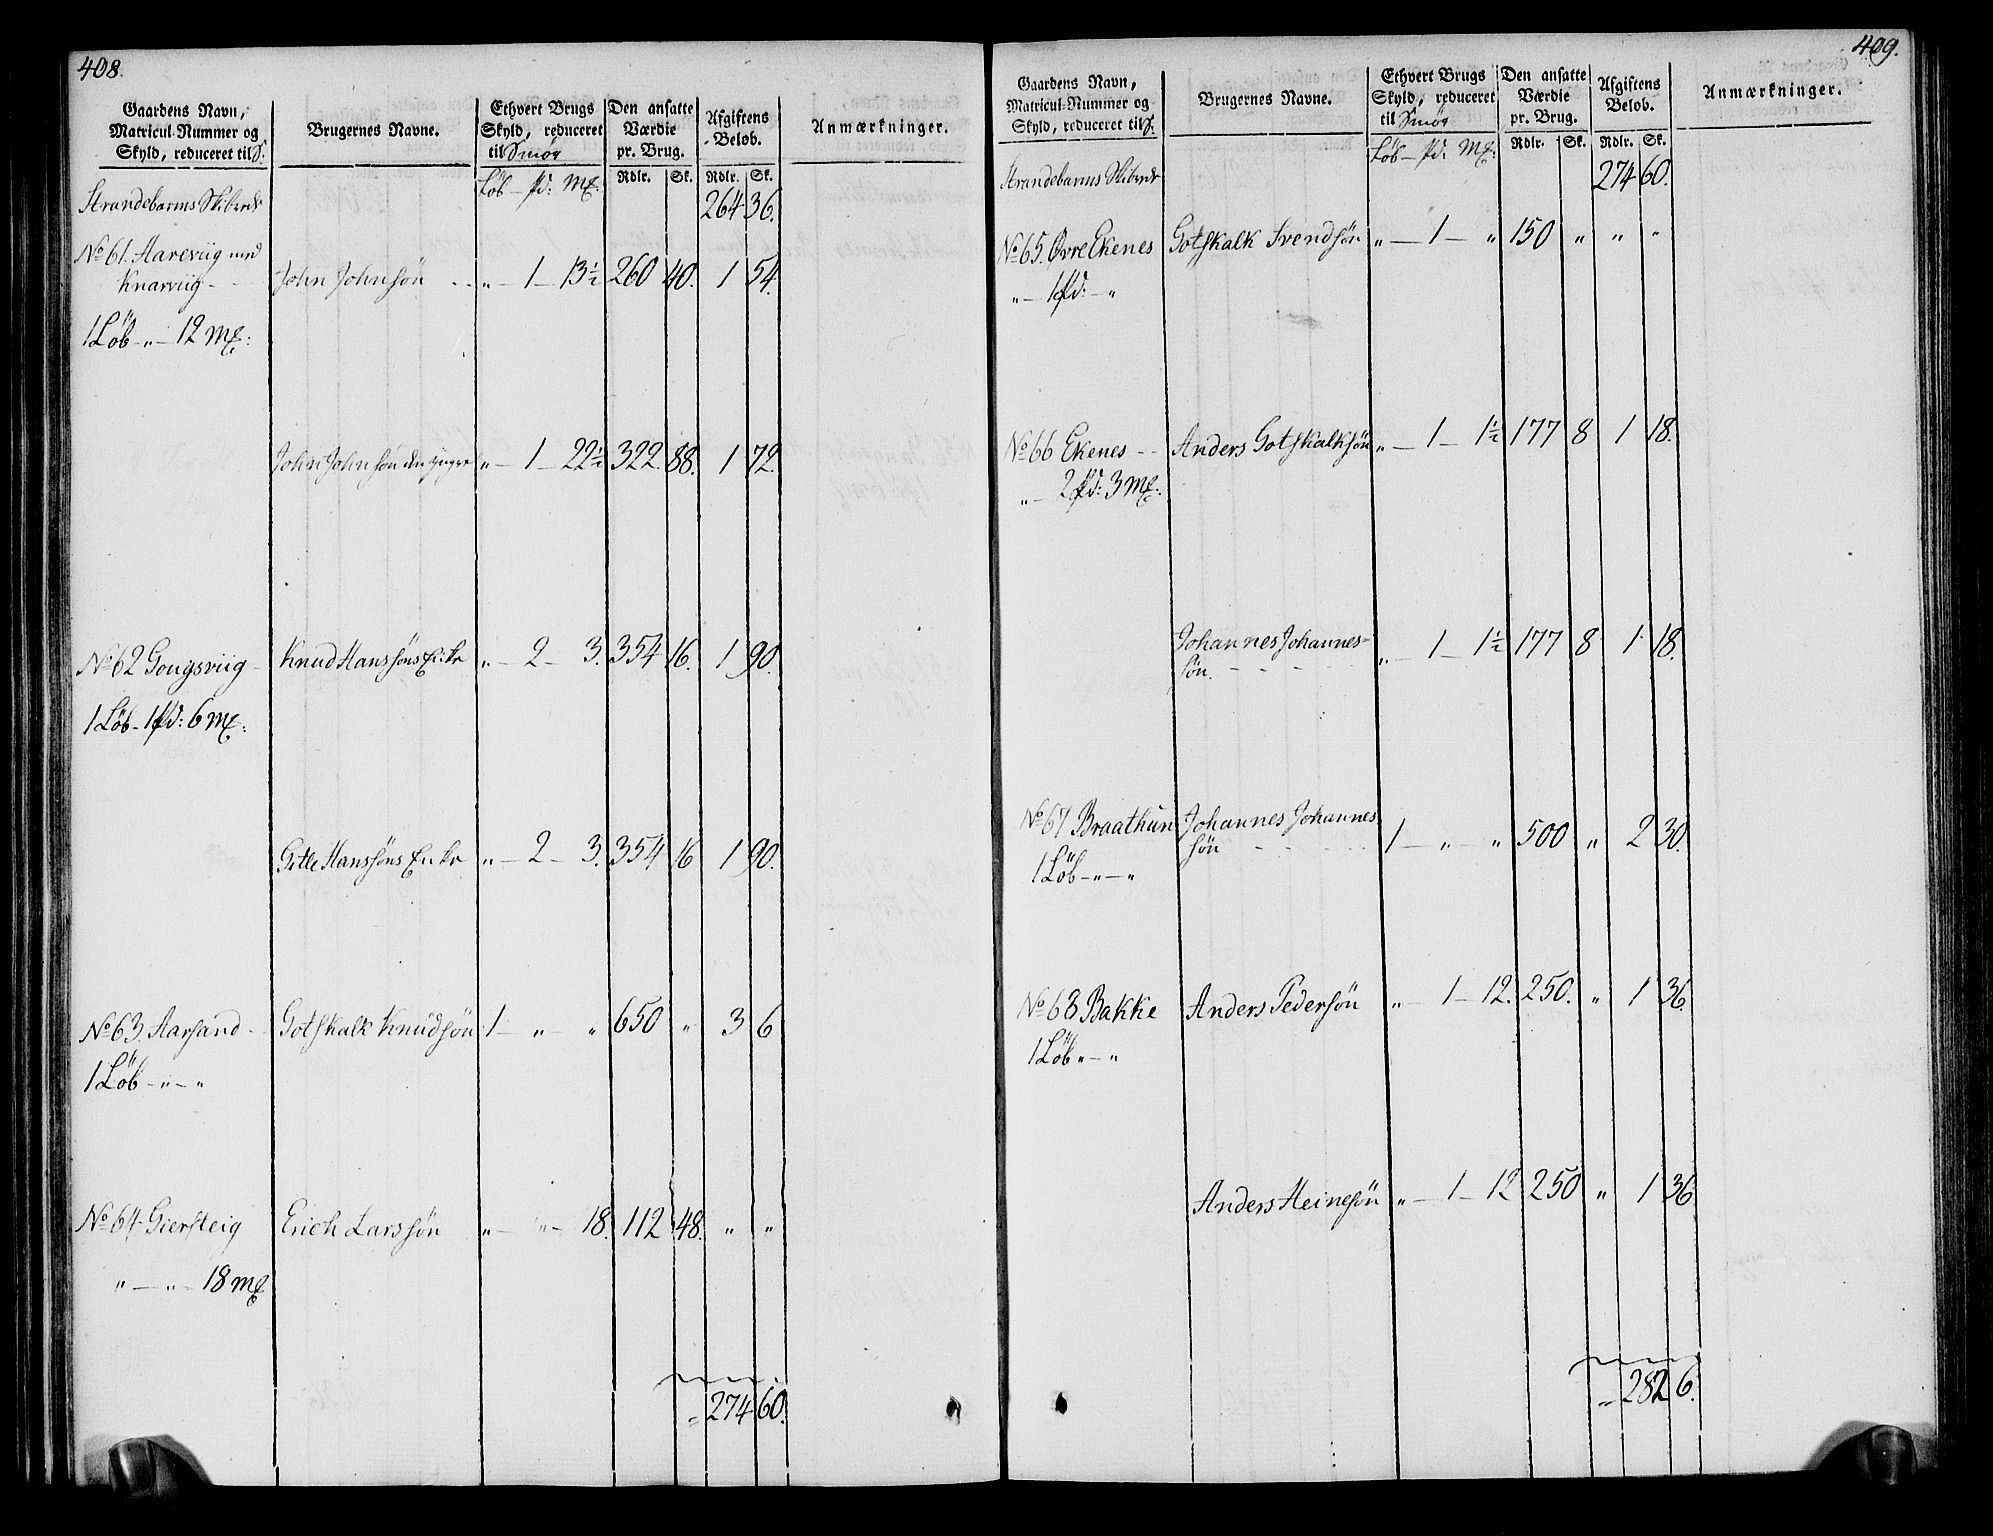 408.
Gaardens Navn, Matricul-Nummer og Skyld, reduceret til S. | Brugernes Navne. | Ethvert Brugs Skyld, reduceret til Smör | Den ansatte Værdie pr. Brug. | Afgiftens Belöb. | Anmærkninger.
Löb — Pd: Mk: | Rdlr. | Sk. | Rdlr. | Sk.
Strandebarms Skibrede 264 36.
No 61. Aareviig med
Knarviig - - John Johnsön - - „ — 1 — 13½ 260 40. 1 54.
1 Löb - „ — 12 Mk:
John Johnsön den yngre „ — 1 — 22½ 322. 88. 1 72.
No 62 Gougsviig - Knud Hanssöns Enke „ — 2 — 3. 354 16. 1 90.
1 Löb - 1 Pd: 6 Mk:
Gitle Hanssöns Enke „ — 2 — 3. 354 16 1 90.
No 63. Aarsand - Gotskalk Knudsön 1 — „ — „ 650 „ 3 6
1 Löb - „ — „
No 64 Giersteig Erich Larssön „ — „ — 18. 112 48. „ „
„ — „ — 18 Mk
274 60.
409.
Gaardens Navn, Matricul-Nummer og Skyld, reduceret til S. | Brugernes Navne. | Ethvert Brugs Skyld, reduceret til Smör | Den ansatte Værdie pr. Brug. | Afgiftens Belöb. | Anmærkninger.
Löb — Pd: Mk: | Rdlr. | Sk. | Rdlr. | Sk.
Strandebarms Skibrede 274 60.
No 65. Øvre Ekenes Gotskalk Svendsön „ — 1 — „ 150 „ „ „
„ — 1 Pd: — „
No 66 Ekenes - - Anders Gotskalksön „ — 1 — 1½ 177 8 1 18.
„ — 2 Pd: 3 Mk:
Johannes Johannes-
sön. - - - „ — 1 — 1½ 177 8 1 18.
No 67 Braathun Johannes Johannes
sön - - - 1 — „ „ 500 „ 2 30.
1 Löb - „ — „
No 68 Bakke Anders Pedersön „ — 1 — 12. 250. „ 1 36.
1 Löb „ — „
Anders Heinesön „ — 1 — 12 250 „ 1 36
282 6.